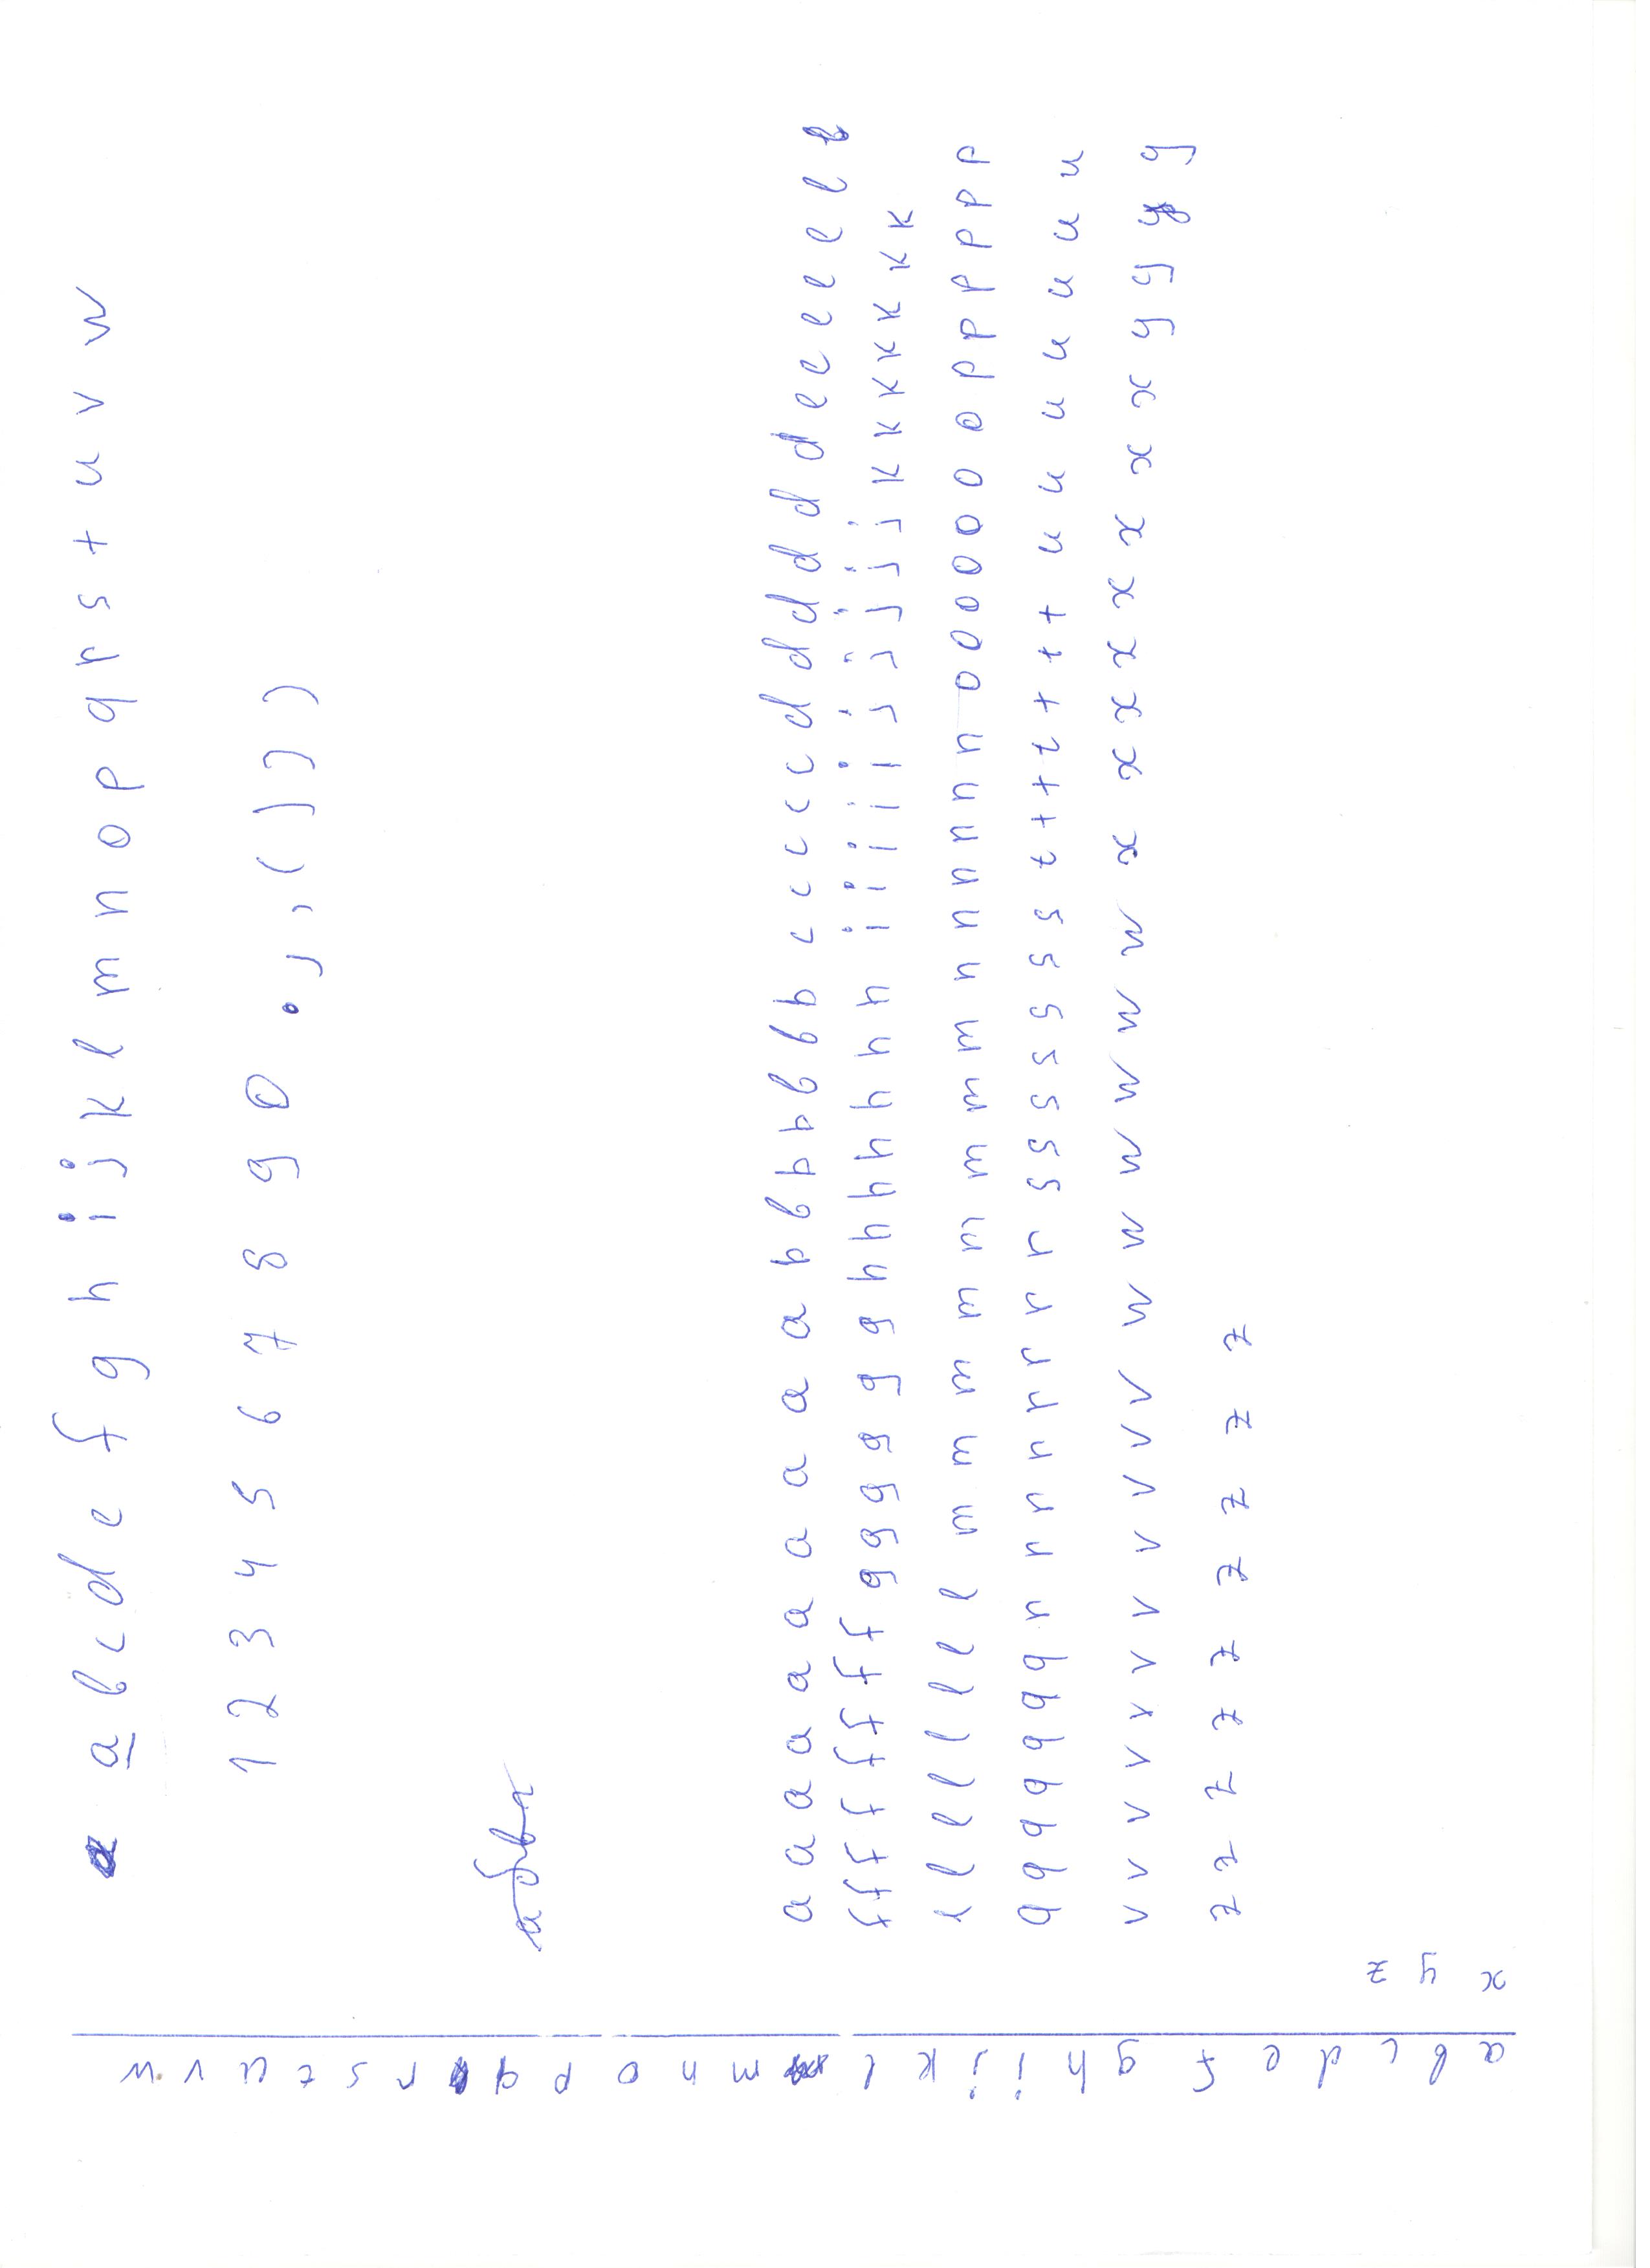 a a b c d e f g h i j k l m n o p q r s t u v w
1 2 3 4 5 6 7 8 9 0 . , , ( ) ) )
абва
a a a a a a a a a a b b b b b b b c c c c c d d d d d d e e e e e e e e
f f f f f f f f g g g g g g h h h h h h h i i i i i j j j j j k k k k k k k
l l l l l l l l m m m m m m m m n n n n n n o o o o o o o p p p p p p
q q q q q q q r r r r r r r r s s s s s s s t t t t t t t u u u u u u u
v v v v v v v v v v v w w w w w w x x x x x x x x y y y y
z z z z z z z z z
a b c d e f g h i j k l m n o p q r s t u v w
x y z